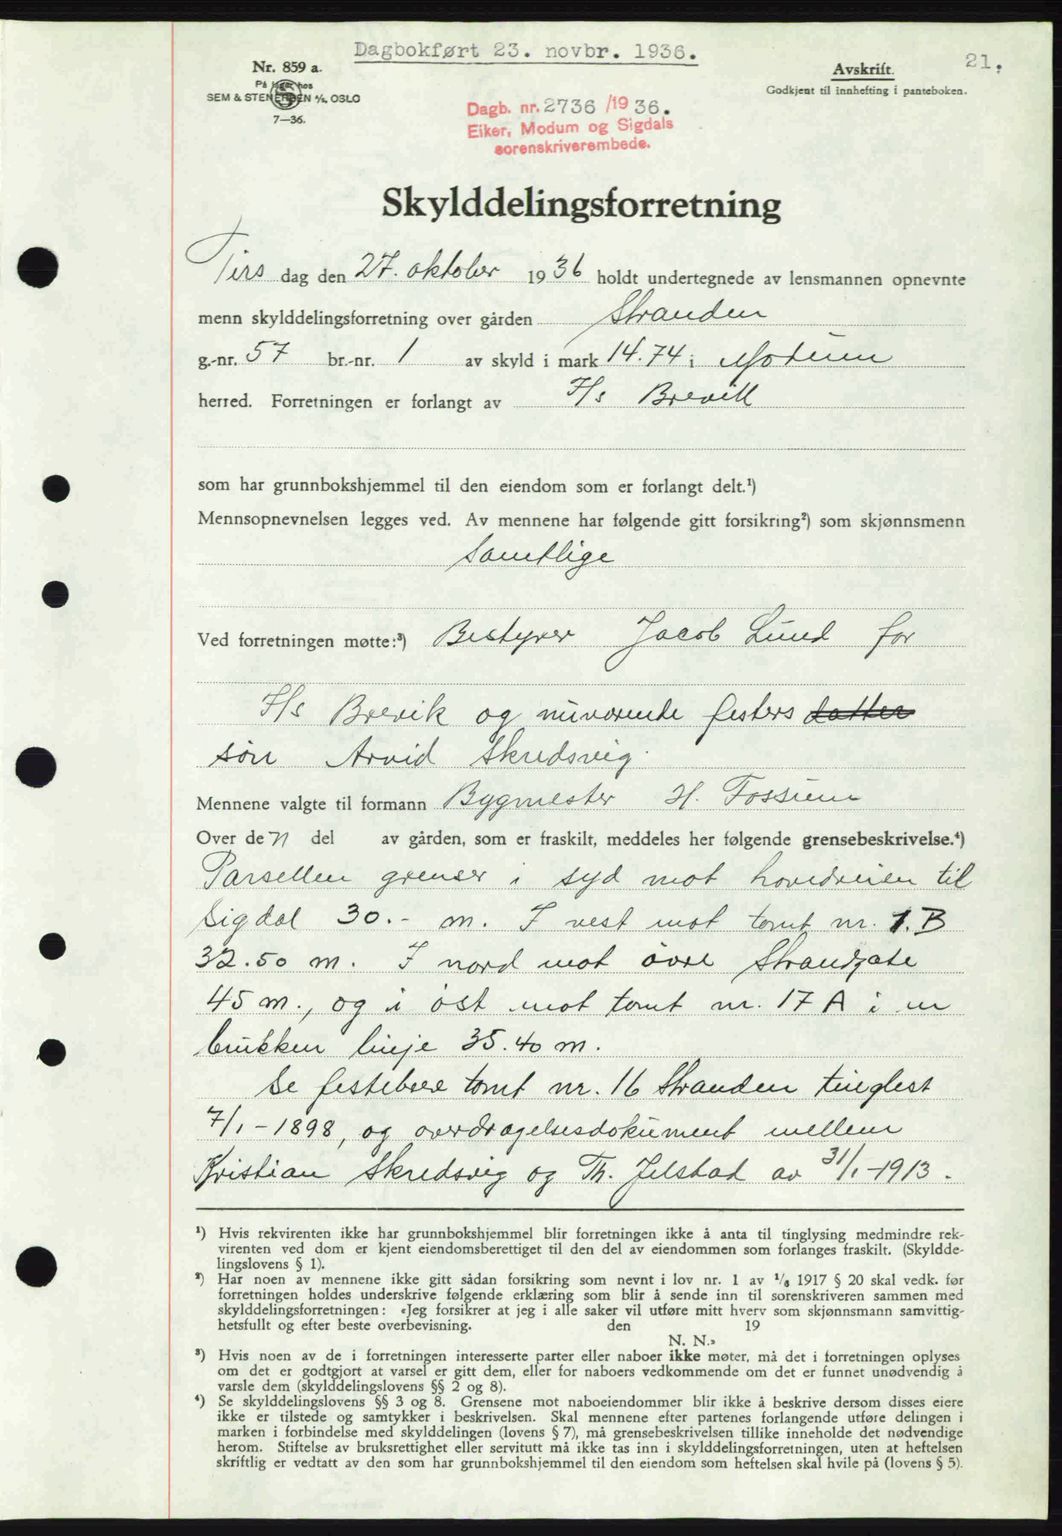 Dagbokført 23. novbr. 1936.
21.
Nr. 859 a.
På lager hos
SEM & STENERSEN A/S, OSLO
7—36.
Avskrift.
Godkjent til innhefting i panteboken.
Dagb. nr. 2736 /19 36.
Eiker, Modum og Sigdals
sorenskriverembede.
Skylddelingsforretning
Tirs dag den 27. oktober 1936 holdt undertegnede av lensmannen opnevnte
menn skylddelingsforretning over gården Stranden
g.-nr. 57 br.-nr. 1 av skyld i mark 14.74 i Modum
herred. Forretningen er forlangt av I/s Brevik
som har grunnbokshjemmel til den eiendom som er forlangt delt.¹)
Mennsopnevnelsen legges ved. Av mennene har følgende gitt forsikring²) som skjønnsmenn
samtlige
Ved forretningen møtte:³) Bestyrer Jacob Lund for
I/s Brevik og nuværende festers datter
søn Arvid Skredsvig.
Mennene valgte til formann Bygmester H. Fossum
Over den del av gården, som er fraskilt, meddeles her følgende grensebeskrivelse.⁴)
Parsellen grenser i syd mot hovedveien til
Sigdal 30.- m. I vest mot tomt nr. 1.B
32.50 m. I nord mot øvre Strandgate
45 m., og i øst mot tomt nr. 17 A i en
brukken linje 35.40 m.
Se festebrev tomt nr. 16 Stranden tinglest
7/1-1898, og overdragelsesdokument mellem
Kristian Skredsvig og Th. Jelstad av 31/1-1913.
¹) Hvis rekvirenten ikke har grunnbokshjemmel blir forretningen ikke å anta til tinglysing medmindre rek-
virenten ved dom er kjent eiendomsberettiget til den del av eiendommen som forlanges fraskilt. (Skyldde-
lingslovens § 1).
²) Har noen av mennene ikke gitt sådan forsikring som nevnt i lov nr. 1 av ¹/₆ 1917 § 20 skal vedk. før
forretningen holdes underskrive følgende erklæring som blir å sende inn til sorenskriveren sammen med
skylddelingsforretningen: «Jeg forsikrer at jeg i alle saker vil utføre mitt hverv som skjønnsmann samvittig-
hetsfullt og efter beste overbevisning. den 19
N. N.»
³) Hvis noen av de i forretningen interesserte parter eller naboer ikke møter, må det i forretningen oplyses
om det er godtgjort at varsel er gitt dem, eller for naboers vedkommende om det er funnet unødvendig å
varsle dem (skylddelingslovens §§ 2 og 8).
⁴) Se skylddelingslovens §§ 3 og 8. Grensene mot naboeiendommer blir ikke å beskrive dersom disses eiere
ikke er tilstede og samtykker i beskrivelsen. Skal mennene efter partenes forlangende utføre delingen i
marken i forbindelse med skylddelingen (lovens § 7), må grensebeskrivelsen tillike inneholde det nødvendige
herom. Stiftelse av bruksrettighet eller servitutt må ikke tas inn i skylddelingsforretningen, uten at heftelsen
skriftlig er vedtatt av den som har grunnbokshjemmel til den eiendom som heftelsen skal hvile på (lovens § 5).